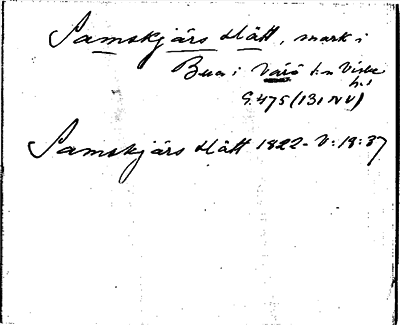 Samskjärs slätt, mark i
Bua i Värö sn Viske
hd
G.475 (131 NV)
Samskjärs slätt 1822 - V: 18:37